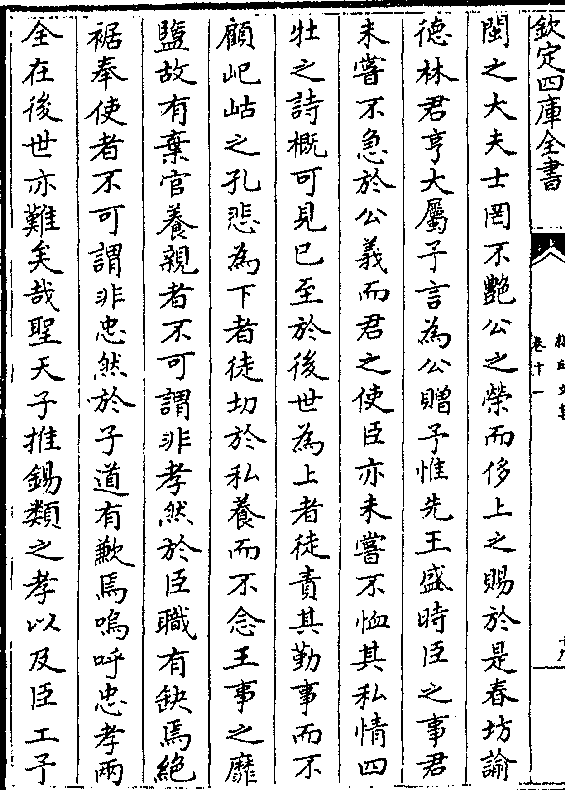 欽定四庫全書
卷十一
閩之大夫士罔不艷公之榮而侈上之賜於是春坊諭
德林君亨大屬予言為公贈予惟先王盛時臣之事君
未嘗不急於公義而君之使臣亦未嘗不恤其私情四
牡之詩概可見已至於後世為上者徒責其勤事而不
顧屺岵之孔悲為下者徒切於私養而不念王事之靡
盬故有棄官養親者不可謂非孝然於臣職有缺焉絶
裾奉使者不可謂非忠然於子道有歉焉嗚呼忠孝兩
全在後世亦難矣哉聖天子推錫類之孝以及臣工子